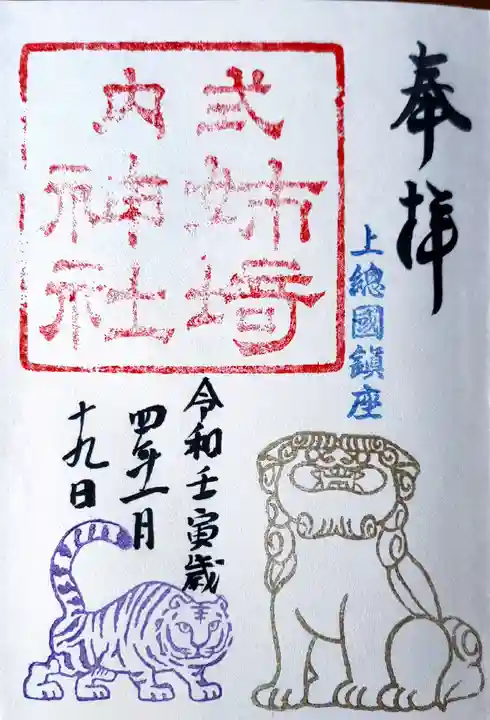 奉拝
上總國鎮座
式内
姉埼神社
令和壬寅歳
四年一月
十九日